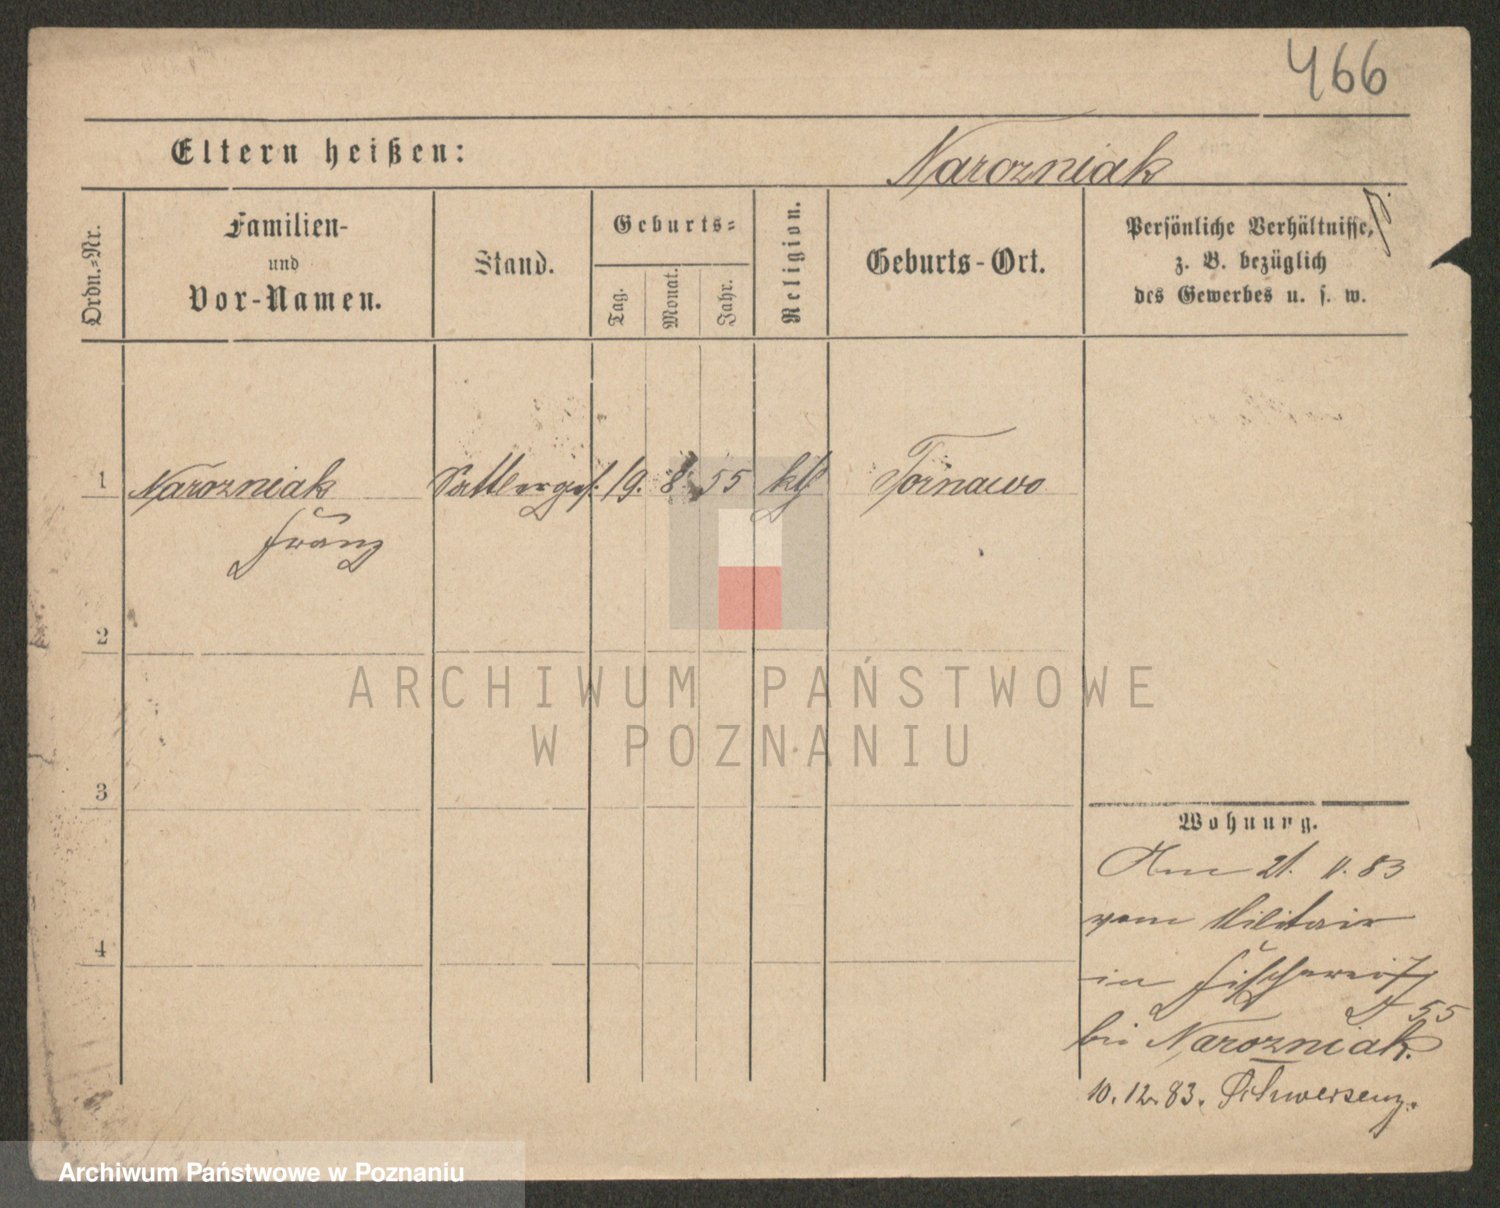 466
Eltern heißen:
Narozniak
Ordn.-Nr.
Familien-
und
Vor-Namen.
Stand.
Geburts-
Tag.
Monat.
Jahr.
Religion.
Geburts-Ort.
Persönliche Verhältnisse,
z. B. bezüglich
des Gewerbes u. s. w.
1 Narozniak Sattlerges. 19. 8. 55 kth
Franz
2
3
4
ARCHIWUM PAŃSTWOWE
W POZNANIU
Wohnung.
Am 21. 11. 83
vom Militair
in Fischerei
55
bei Narozniak.
10. 12. 83. Schwersenz.
Archiwum Państwowe w Poznaniu